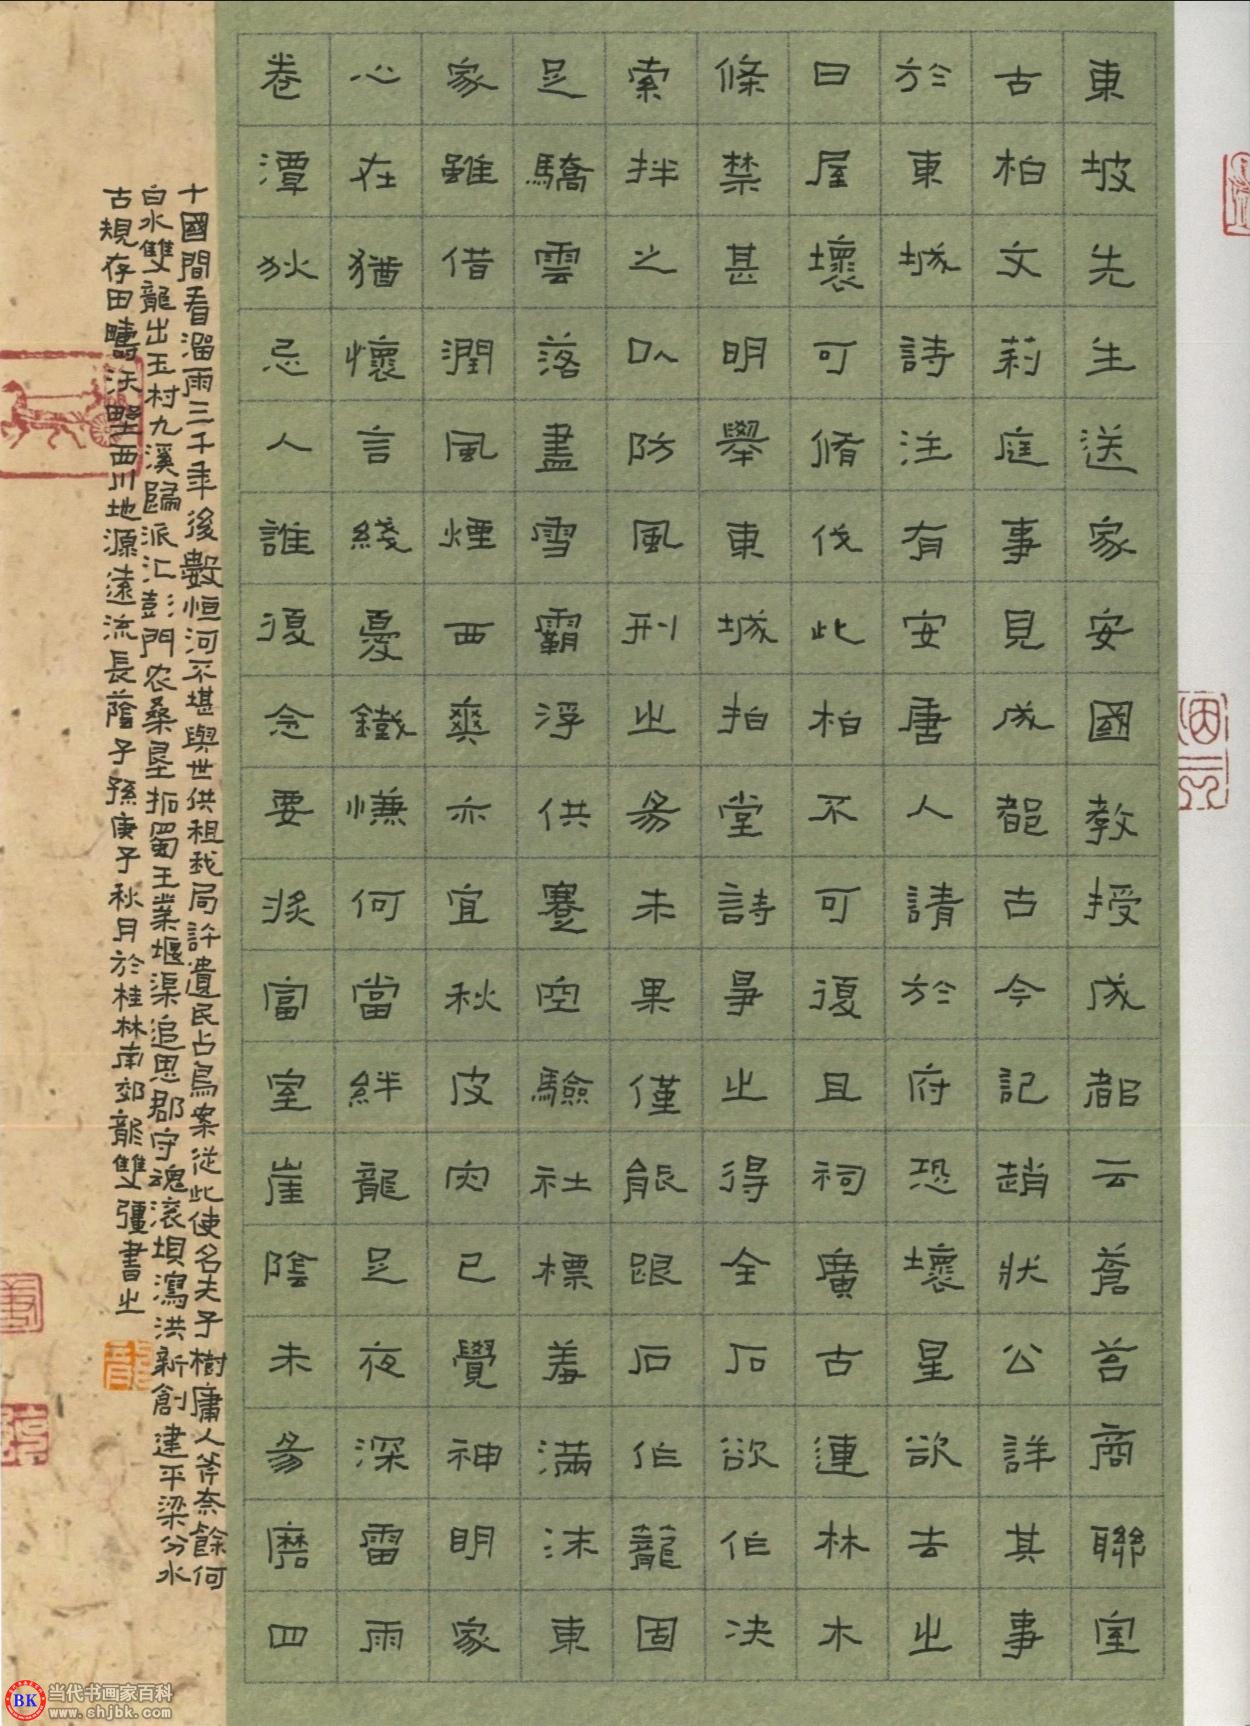 東坡先生送家安國教授成都云蒼苔商聯室
古柏文莉庭事見成都古今記趙狀公詳其事
於東城詩注有安唐人請於府恐壞星欲去之
曰屋壞可脩伐此柏不可復且祠廣古連林木
條禁甚明舉東城拍堂詩爭之得全石欲伯决
索拌之以防風刑之易未果僅能跟石伯籠固
足驕雲落盡雪霸浮供蹇空驗社標羞滿沫東
家雖借潤風煙西爽亦宜秋皮肉已覺神明家
心在猶懷言綫憂鐵慊何當絆龍足夜深雷雨
卷潭狄忌人誰復念要將富室崖陰未易磨四
十國間看溜雨三千年後數恒河不堪與世供租税局許遺民占鳥案從此使名夫子樹庸人斧柰餘何
白水雙龍出玉村九溪歸派汇彭門农桑垦拓蜀王業堰渠追思郡守魂滚坝瀉洪新創建平梁分水
古規存田疇沃野西川地源遠流長蔭子孫庚子秋月於桂林南郊龍雙彊書之
当代书画家百科
www.shjbk.com
BK